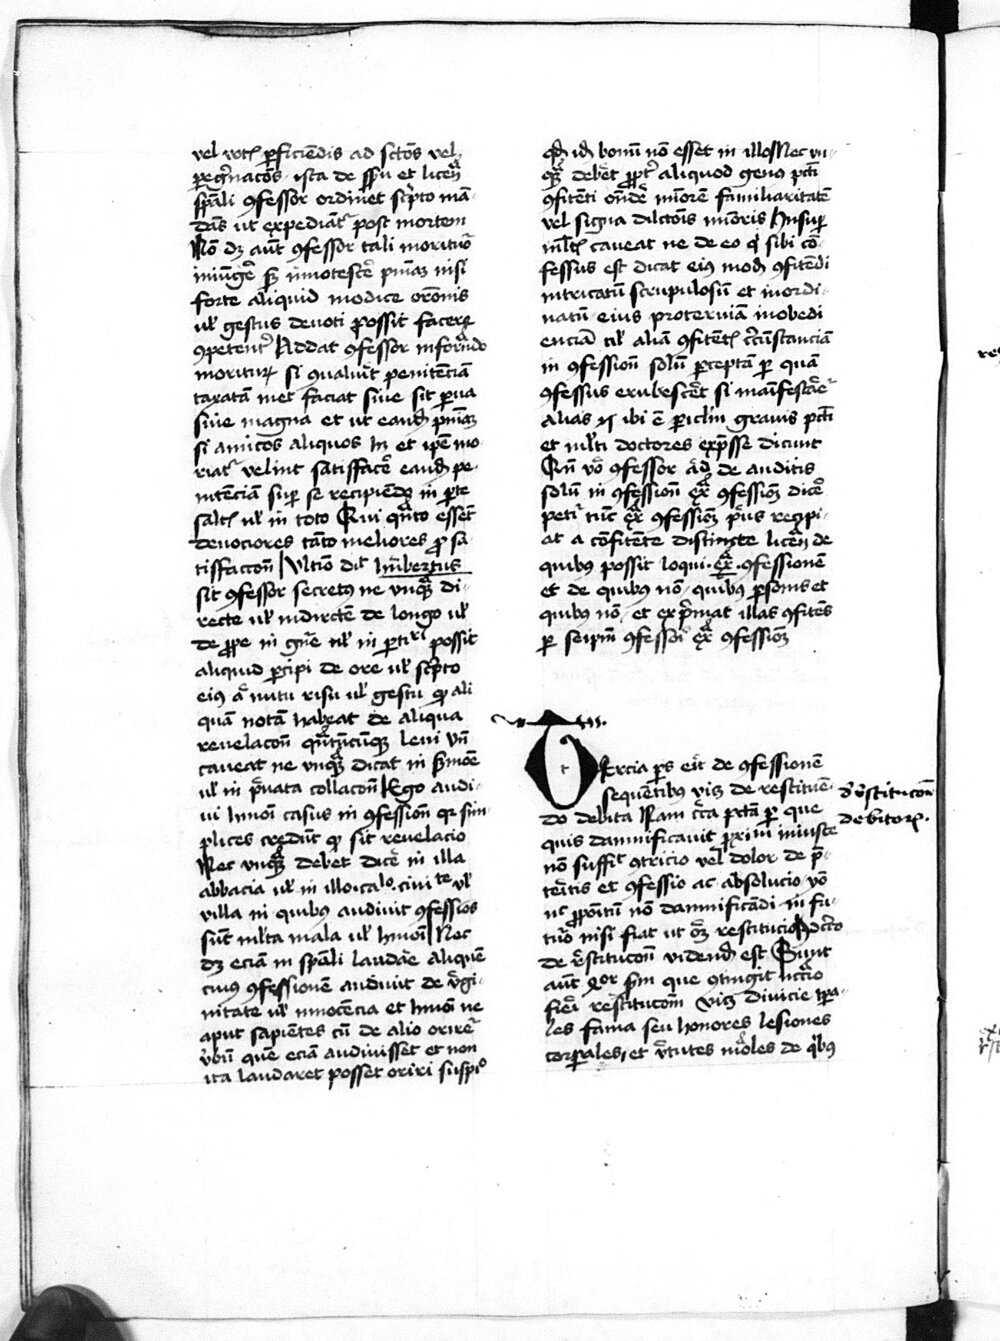 vel votꝭ ꝑficiendis ad sctōs vel
ꝑegͥnacōs ista de ssu et licen̄
spāli ꝯfessor ordinet scͥpto man
daīs ut expediant᷑ post mortem
Nō dꝫ aut̄ ꝯfessor tali morituro
iniūgẽ sꝫ innotescẽ pn̄iaꝫ nisi
forte aliquid modice orōnis
ul̓ gestus deuoti possit facere
ꝯpetent᷑ Addat ꝯfessor informādo
moriturꝝ si qualiūt penitenciā
taxatam met faciat siue sit ꝑua
siue magna et ut eand̄ pn̄iaꝫ
si amicos aliquos hꝫ et ip̄e mo-
riat᷑ velint satisfacẽ eand̄ pe-
nitenciā suꝑ se recipiendo in ꝑte
saltꝫ ul̓ in toto Qui qn̄to essent
deuociores tāto meliores ꝓ sa
tisfaccōn Vltīo dic̄ hūbertus
sit ꝯfessor secretus ne unqꝫ di-
recte ul̓ indirctē de longo ul̓
de ꝓpe in gn̄e ul̓ in ꝑtiͨͬⁱ possit
aliquid ꝑcipi de ore ul̓ scͥpto
eiꝰ aͨ nutu risu ul̓ gestu ꝙ ali
quā notā habeat de aliqua
reuelacōn qn̄tūcūqꝫ leui Vn̄
caueat ne unqꝫ dicat in ẜmōe
ul̓ in pͥuata collacōn Ego audi-
ui hmōi casus in ꝯfession̄ qꝛ sim
plices credūt ꝙ sit reuelacio
Nec unqꝫ debet dicẽ in illa
abbacia ul̓ in illo ica lo. ciuiᵗᵉ ul̓
villa in quibꝰ audiuit ꝯfessiōs
sūt ml̓ta mala ul̓ hmōi Nec
dꝫ eciā in spāli laudāe aliquē
cuiꝰ ꝯfessionē audiuit de vͥgi-
nitate ul̓ innocencia et hmōi ne
aput sapientes cū de alio oriret᷑
ūbūm quē eciā audiuisset et non
ita laudaret posset oriri suspicͦ
qd̄ id̄ bonū nō esset in illo Nec un-
qꝫ debet ꝓpt᷑ aliquod genus pcti
ꝯfitenti ondẽ miorē familiaritatē
vel signa dilctōis minoris Insuꝑ
ml̓tꝫ caueat ne de eo qͥ sibi cō-
fessus est dicat eiꝰ modū ꝯfitēdi
intricatū scrupulosū et inordi-
natū eius proteruiā inobedi
enciā ul̓ aliā ꝯfitentꝭ cͥcūstanciā
in ꝯfession̄ solū ꝑceptā ꝑ quā
ꝯfessus erubesceret si maifestarẽt᷑
alias ibi ē ꝑiclm̄ grauis pcti
et ml̓ti doctores exp̄sse dicunt
Qn̄ vo ꝯfessor aͥd de auditis
solū in ꝯfession̄ exͣ ꝯfessionꝫ dicẽ
petit᷑ tūc exͣ ꝯfessionꝫ pͥus recipi-
at a cōfitente distincte licen̄ de
quibꝰ possit loqui exͣ ꝯfessionē
et de quibꝰ nō quibꝰ ꝑsonis et
quibꝰ nō et expͥmat illas ꝯfitēs
ꝑ seip̄m ꝯfessoͥ exͣ ꝯfessionꝫ
III.
Tercia ꝑs erit de ꝯfessionē
sequentibꝰ viꝫ de restituen-
do debita Nam cͥca pctā ꝑ que
quis damnificauit ꝓximū iniuste
nō suffit ꝯtricio vel dolor de p̄-
teritis et ꝯfessio ac absolucio vō
nec ꝓpoītū nō damnificādi in fu-
tuͦ nisi fiat ut oꝫ restitucio Adcto
de rͤstitucōn videnꝫ est Sunt
aut̄ qͥor ẜm que ꝯtingit nccͥio
fieri restitucōm viꝫ diuicie tpa-
les fama seu honores lesiones
corꝑales et vͥtutes moͬles de qͥbꝰ
d᷑ rͤstitucōn
debitorꝝ.